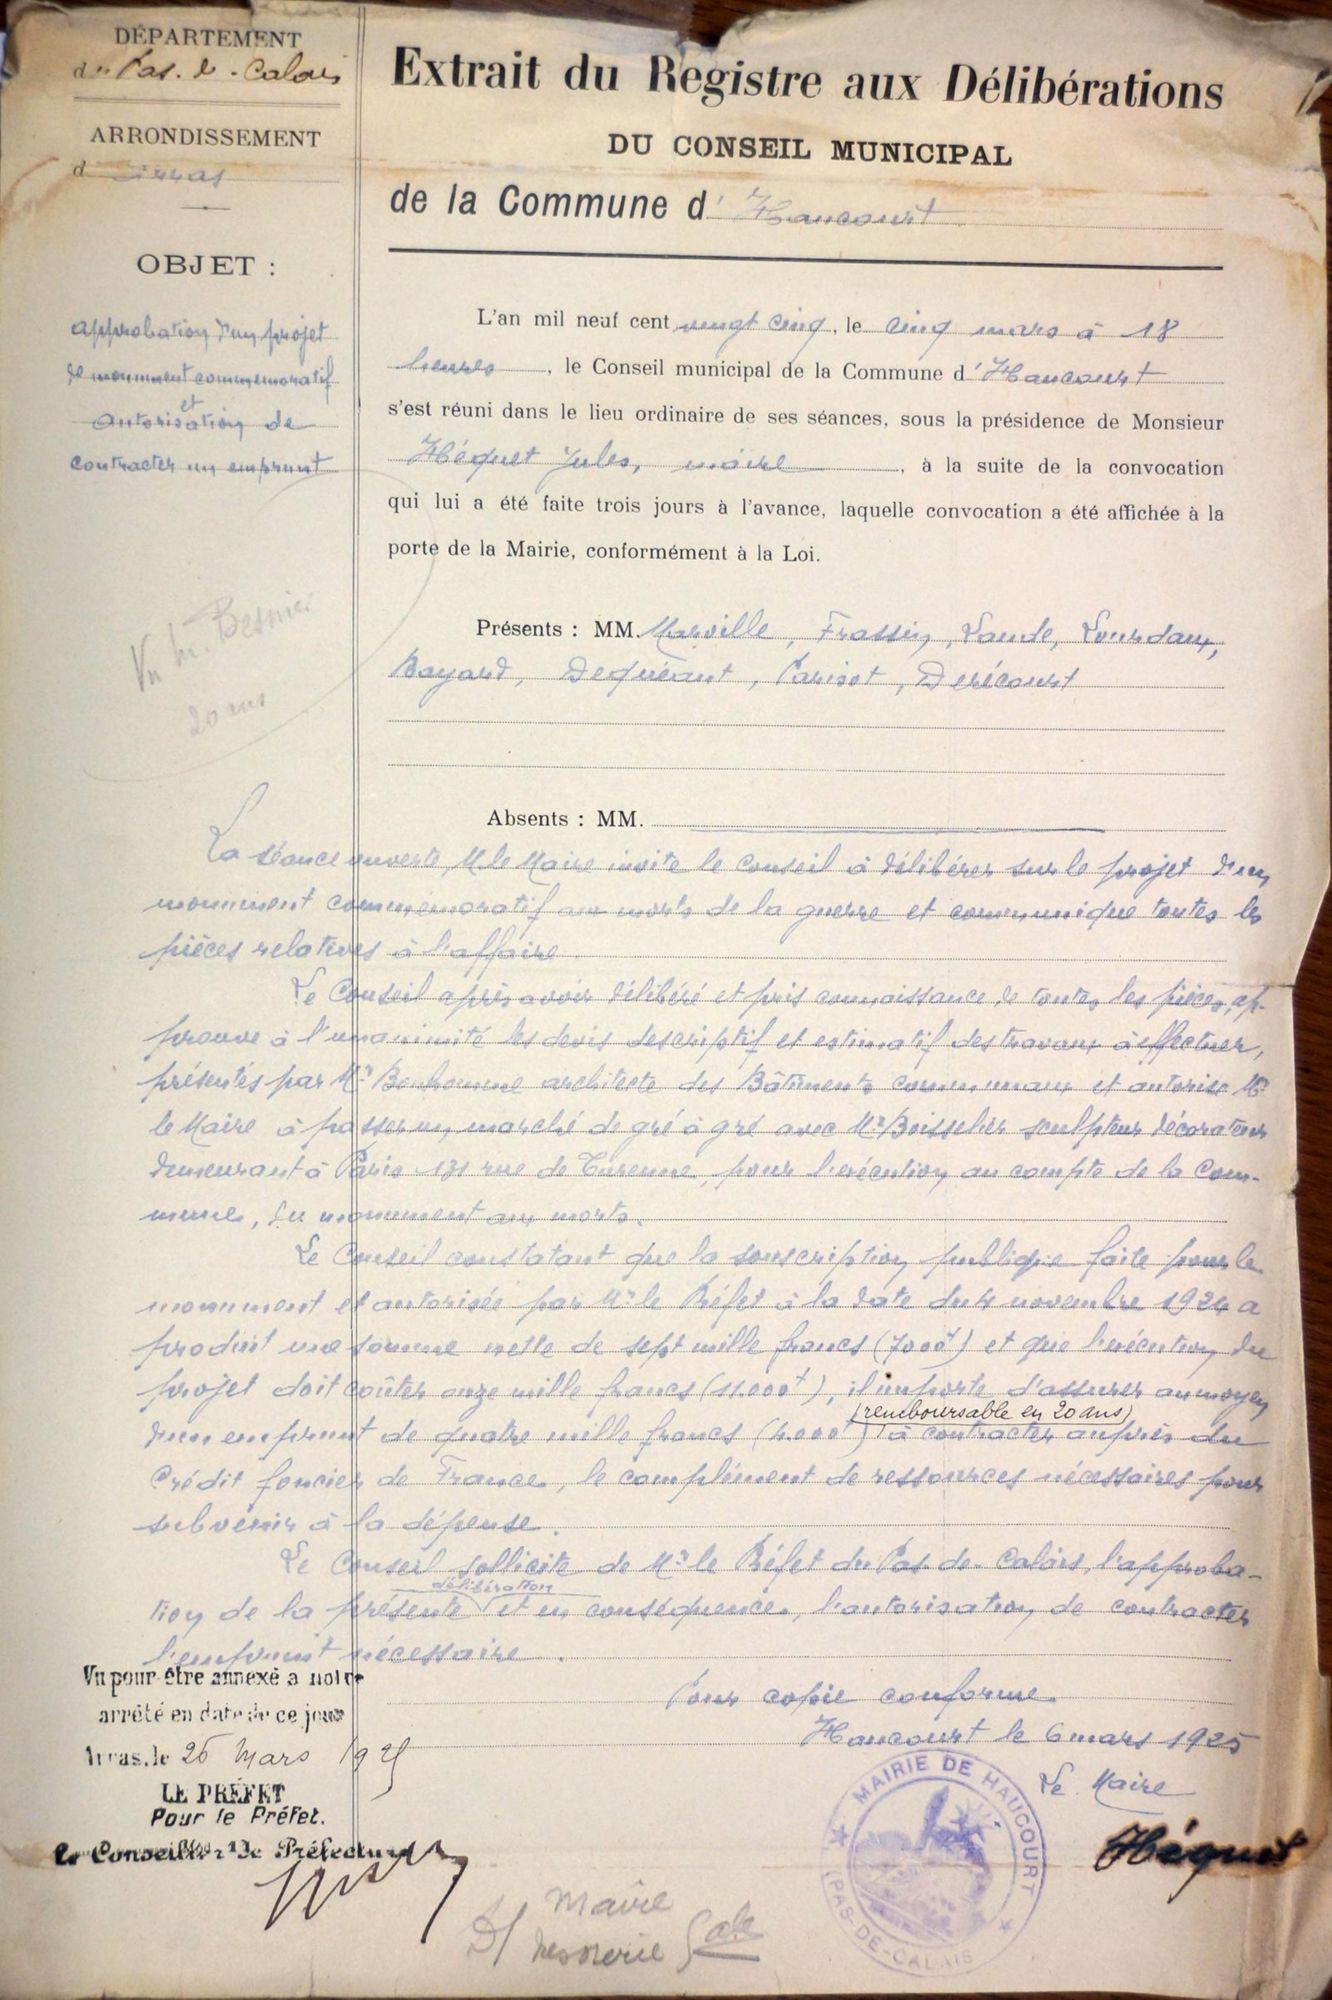 DÉPARTEMENT
du Pas-de-Calais
ARRONDISSEMENT
d Arras
OBJET :
approbation d'un projet
de monument commémoratif
et
autorisation de
contracter un emprunt
Vu M. Besnier
20 ans
Extrait du Registre aux Délibérations
DU CONSEIL MUNICIPAL
de la Commune d'Haucourt
L'an mil neuf cent vingt cinq, le cinq mars à 18
heures, le Conseil municipal de la Commune d'Haucourt
s'est réuni dans le lieu ordinaire de ses séances, sous la présidence de Monsieur
Héquet Jules, maire, à la suite de la convocation
qui lui a été faite trois jours à l'avance, laquelle convocation a été affichée à la
porte de la Mairie, conformément à la Loi.
Présents : MM. Marville, Frassin, Laude, Lourdaux,
Bayard, Dequéant, Parisot, Derécourt
Absents : MM.
La séance ouverte, M. le Maire invite le Conseil à délibérer sur le projet d'un
monument commémoratif aux morts de la guerre et communique toutes les
pièces relatives à l'affaire.
Le Conseil après avoir délibéré et pris connaissance de toutes les pièces, ap-
prouve à l'unanimité les devis descriptif et estimatif des travaux à effectuer,
présentés par Mr Bonhomme architecte des Bâtiments communaux et autorise Mr
le Maire à passer un marché de gré à gré avec Mr Boisselier sculpteur décorateur
demeurant à Paris 131 rue de Turenne, pour l'exécution au compte de la Com-
mune, du monument aux morts.
Le Conseil constatant que la souscription publique faite pour le
monument et autorisée par Mr le Préfet à la date du 4 novembre 1924 a
produit une somme nette de sept mille francs (7000f) et que l'exécution du
projet doit coûter onze mille francs (11.000f), il importe d'assurer au moyen
(remboursable en 20 ans)
d'un emprunt de quatre mille francs (4.000f) à contracter auprès du
Crédit foncier de France, le complément de ressources nécessaires pour
subvenir à la dépense.
Le Conseil sollicite de Mr le Préfet du Pas-de-Calais, l'approba-
délibération
tion de la présente et en conséquence, l'autorisation de contracter
l'emprunt nécessaire.
Pour copie conforme
Haucourt le 6 mars 1925
Le Maire
Héquet
MAIRIE DE HAUCOURT
(PAS-DE-CALAIS)
Vu pour être annexé à notre
arrêté en date de ce jour
Arras, le 26 Mars 1925
LE PRÉFET
Pour le Préfet.
Le Conseiller de Préfecture
Maire